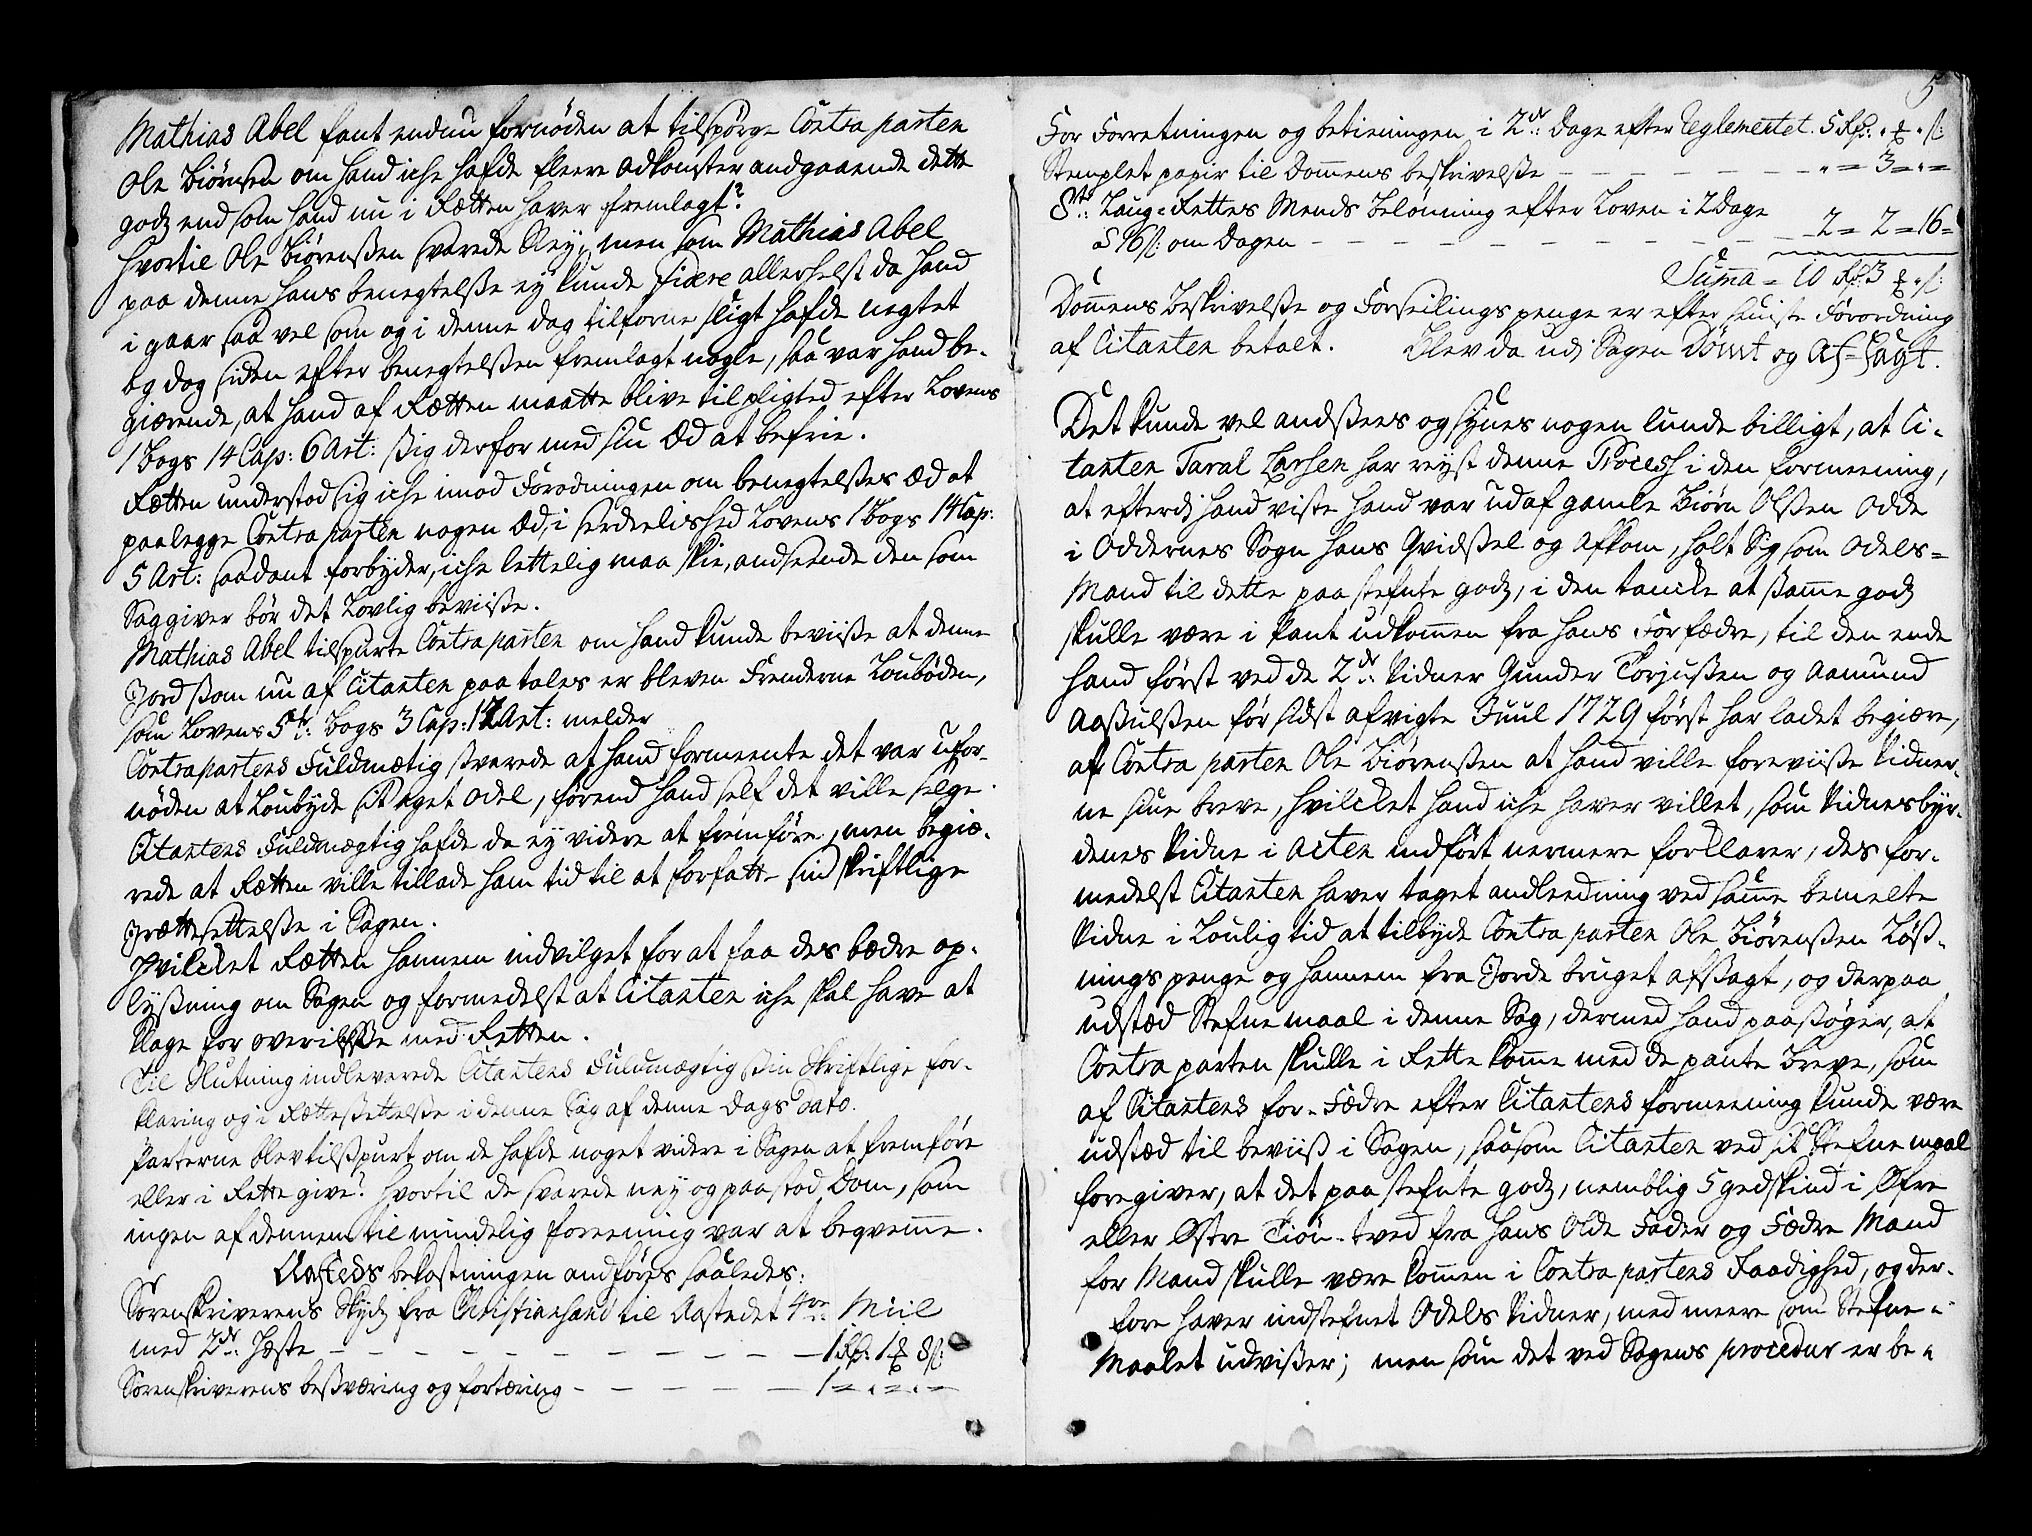 Mathias Abel fant endnu fornöden at tilspörge Contraparten
Ole Biörnsen om hand iche hafde fleere Adkomster andgaaende dette
godz end som hand nu i Rætten haver fremlagt?
Hvortil Ole Biörenssen svarede Ney, men som Mathias Abel
paa denne hans benegtelsse ey kunde fidere allerhelst da hand
i gaar saa vel som og i denne dag tilforne sligt hafde negtet
og dog siden efter benegtelssen fremlagt nogle, saa var hand be-
giærende, at hand af Rætten maatte blive tilpligted efter Lovens
1 Bogs 14 Cap: 6 Art: ssig derfor med sin Æd at befrie.
Rætten understod sig iche imod Forordningen om benegtelsses Æd at
paalegge Contraparten nogen Æd, i særdeelished Lovens 1 Bogs 14 Cap:
5 Art: saadant forbyder, iche lettelig maa skie, andseende den som
Saggiver bör det Lovlig beviisse.
Mathias Abel tilspurte Contraparten om hand kunde beviisse at denne
Jord ssom nu af Citanten paatales er bleven Frenderne Loubøden,
som Lovens 5te: Bogs 3 Cap: 12 Art: melder
Contrapartens Fuldmætig svarede at hand formeente det var ufor-
nöden at Loubyde sit Eget Odel, förend hand self det ville selge.
Citantens Fuldmægtig hafde da ey videre at fremföre, men begiæ-
rede at Rætten ville tillade ham tid til at forfatte sin skriftlige
Irættesettelsse i Sagen.
Hvilcket Rætten hannem indvilget for at faa des bædre op-
lyssning om Sagen og formedelst at Citanten iche skal have at
klage for overilelsse med Retten.
Til Slutning indleverede Citantens Fuldmægtig ssin Skriftlige for-
klaring og i Rættessettelsse i denne Sag af denne Dags Dato.
Parterne blev tilsspurt om de hafde noget videre i Sagen at fremföre
eller i Rette give? hvortil de svarede ney og paastod Dom, som
ingen af dennem til mindelig foreening var at beqvemme.
Aasteds bekostningen andföres saaledes:
Sorenskriverens Skydz fra Christianssand til Aastedet 4re: Miil
med 2de: Hæste — — — 1 Rd: 1 ℔ 8 s:
Sorenskriverens bessværing og fortæring — — — 1 = „ = „ =
5
For Forretningen og betieningen i 2de: Dage efter Reglementet. 5 Rd: „ ℔ „ s:
Stemplet papir til Dommens beskrivelsse — — — „ = 3 = „ =
8te: Laug=Rettes Mends Belönning efter Loven i 2 Dage
a 16 s: om Dagen — — — 2 = 2 = 16 =
Summa = 10 Rd 3 ℔ „ s:
Dommens Beskrivelsse og Forseilings penge er efter siuiste Forordning
af Citanten betalt. Blev da udi Sagen Dömt og Af=sagt.
Det kunde vel andssees og synes nogen lunde billigt, at Ci-
tanten Taral Larsen har reyst denne Process i den formeening,
at efterdj hand viste hand var udaf gamle Biörn Olssen Odde
i Oddernes Sogn hans Qvidssel og Afkom, holt Sig som Odels=
Mand til dette paa stefnte godz, i den tancke at samme godz
skulle være i Pant udkommen fra hans Forfædre, til den ende
hand först ved de 2de: Vidner Gunder Torjussen og Aamund
Aassulssen för sidst afvigte Juul 1729 först har ladet begiære,
af Contraparten Ole Biörenssen at hand ville foreviisse Vidner-
ne sine breve, hvilcket hand iche haver villet, som Vidnesbyr-
denes Vidne i Acten indfört nermere forklarer, des for-
medelst Citanten haver taget andleedning ved samme bemelte
Vidne i Loulig tid at tilbyde Contraparten Ole Biörenssen Löss-
nings penge og hannem fra Jorde bruget afssagt, og derpaa
udstæd Stefnemaal i denne Sag, dermed hand paassöger, at
Contraparten skulle i Rette komme med de pante breve, som
af Citantens for-Fædre efter Citantens formeening kunde være
udstæd til beviiss i Sagen, saasom Citanten ved sit Stefnemaal
foregiver, at det paa stefnte godz, nemblig 5 gedskind i Øfre
eller Østre Tiön-tved fra hans Olde Fader og Fædre Mand
for Mand skulle være kommen i Contrapartens Raadighed, og der-
fore haver indstefnet Odels Vidner, med meere som Stefne=
Maalet udvisser; men som det ved Sagens procedur er be=